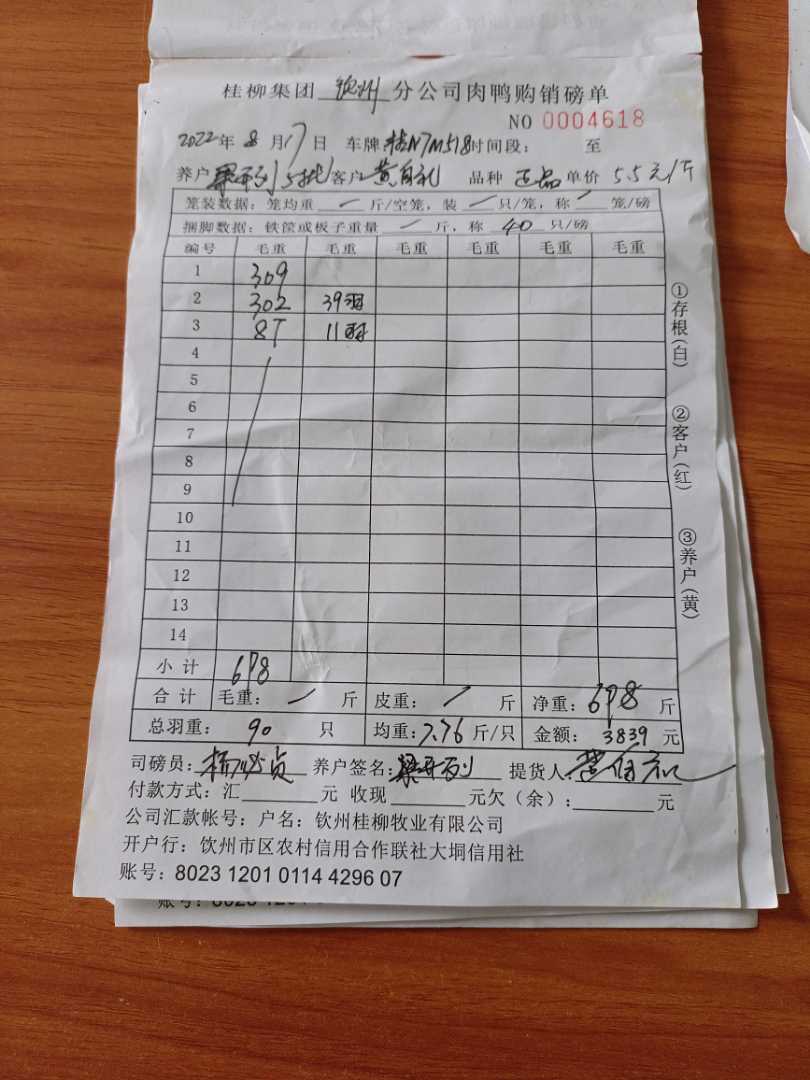 桂柳集团 钦州 分公司肉鸭购销磅单
NO 0004618
2022年 8 月 17 日 车牌:桂N7M518 时间段: 至
养户 5批 客户 黄 品种 正品 单价 5.5元/斤
笼装数据: 笼均重 / 斤/空笼, 装 / 只/笼, 称 / 笼/磅
捆脚数据: 铁筐或板子重量 / 斤, 称 40 只/磅
编号 毛重 毛重 毛重 毛重 毛重 毛重
1 309
2 302 39羽
3 87 11羽
4
5
6
7
8
9
10
11
12
13
14
小 计 698
合 计 毛重: / 斤 皮重: / 斤 净重: 698 斤
总羽重: 90 只 均重: 7.76 斤/只 金额: 3839 元
司磅员: 杨必贞 养户签名: 提货人:
付款方式: 汇 元 收现 元欠(余): 元
公司汇款帐号: 户名: 钦州桂柳牧业有限公司
开户行: 钦州市区农村信用合作联社大垌信用社
账号: 8023 1201 0114 4296 07
①存根(白)
②客户(红)
③养户(黄)